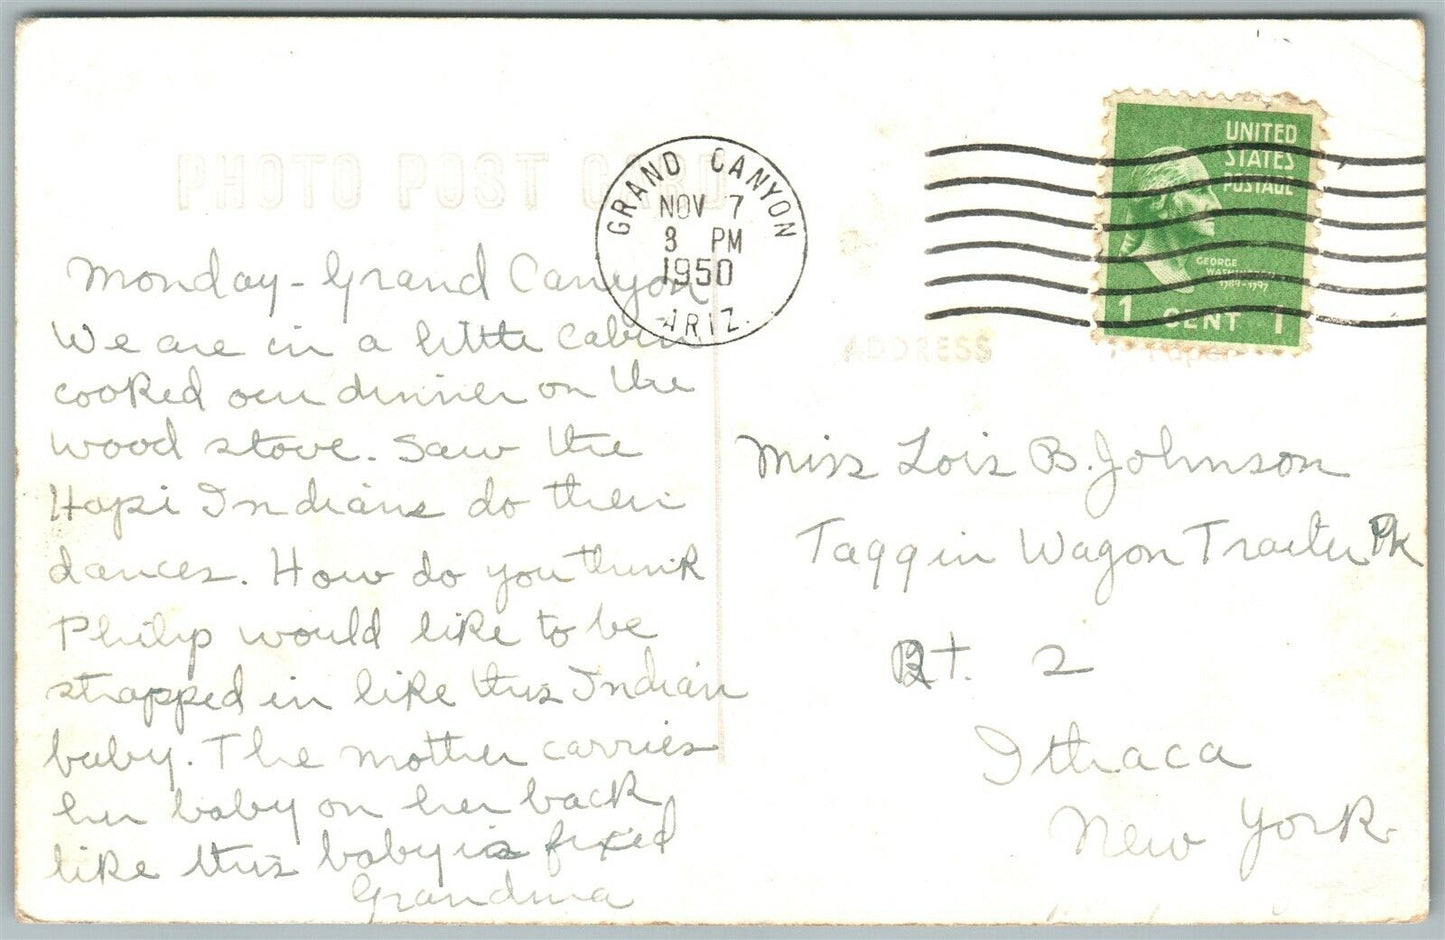 PHOTO POST CARD
GRAND CANYON
NOV 7
3 PM
1950
ARIZ.
UNITED
STATES
POSTAGE
GEORGE
WASHINGTON
1789-1797
1 CENT 1
ADDRESS
Monday - Grand Canyon
We are in a little cabin
cooked our dinner on the
wood stove. Saw the
Hopi Indians do their
dances. How do you think
Philip would like to be
strapped in like this Indian
baby. The mother carries
her baby on her back
like this baby is fixed
Grandma
Miss Lois B. Johnson
Taggin Wagon Trailer Pk
Rt. 2
Ithaca
New York